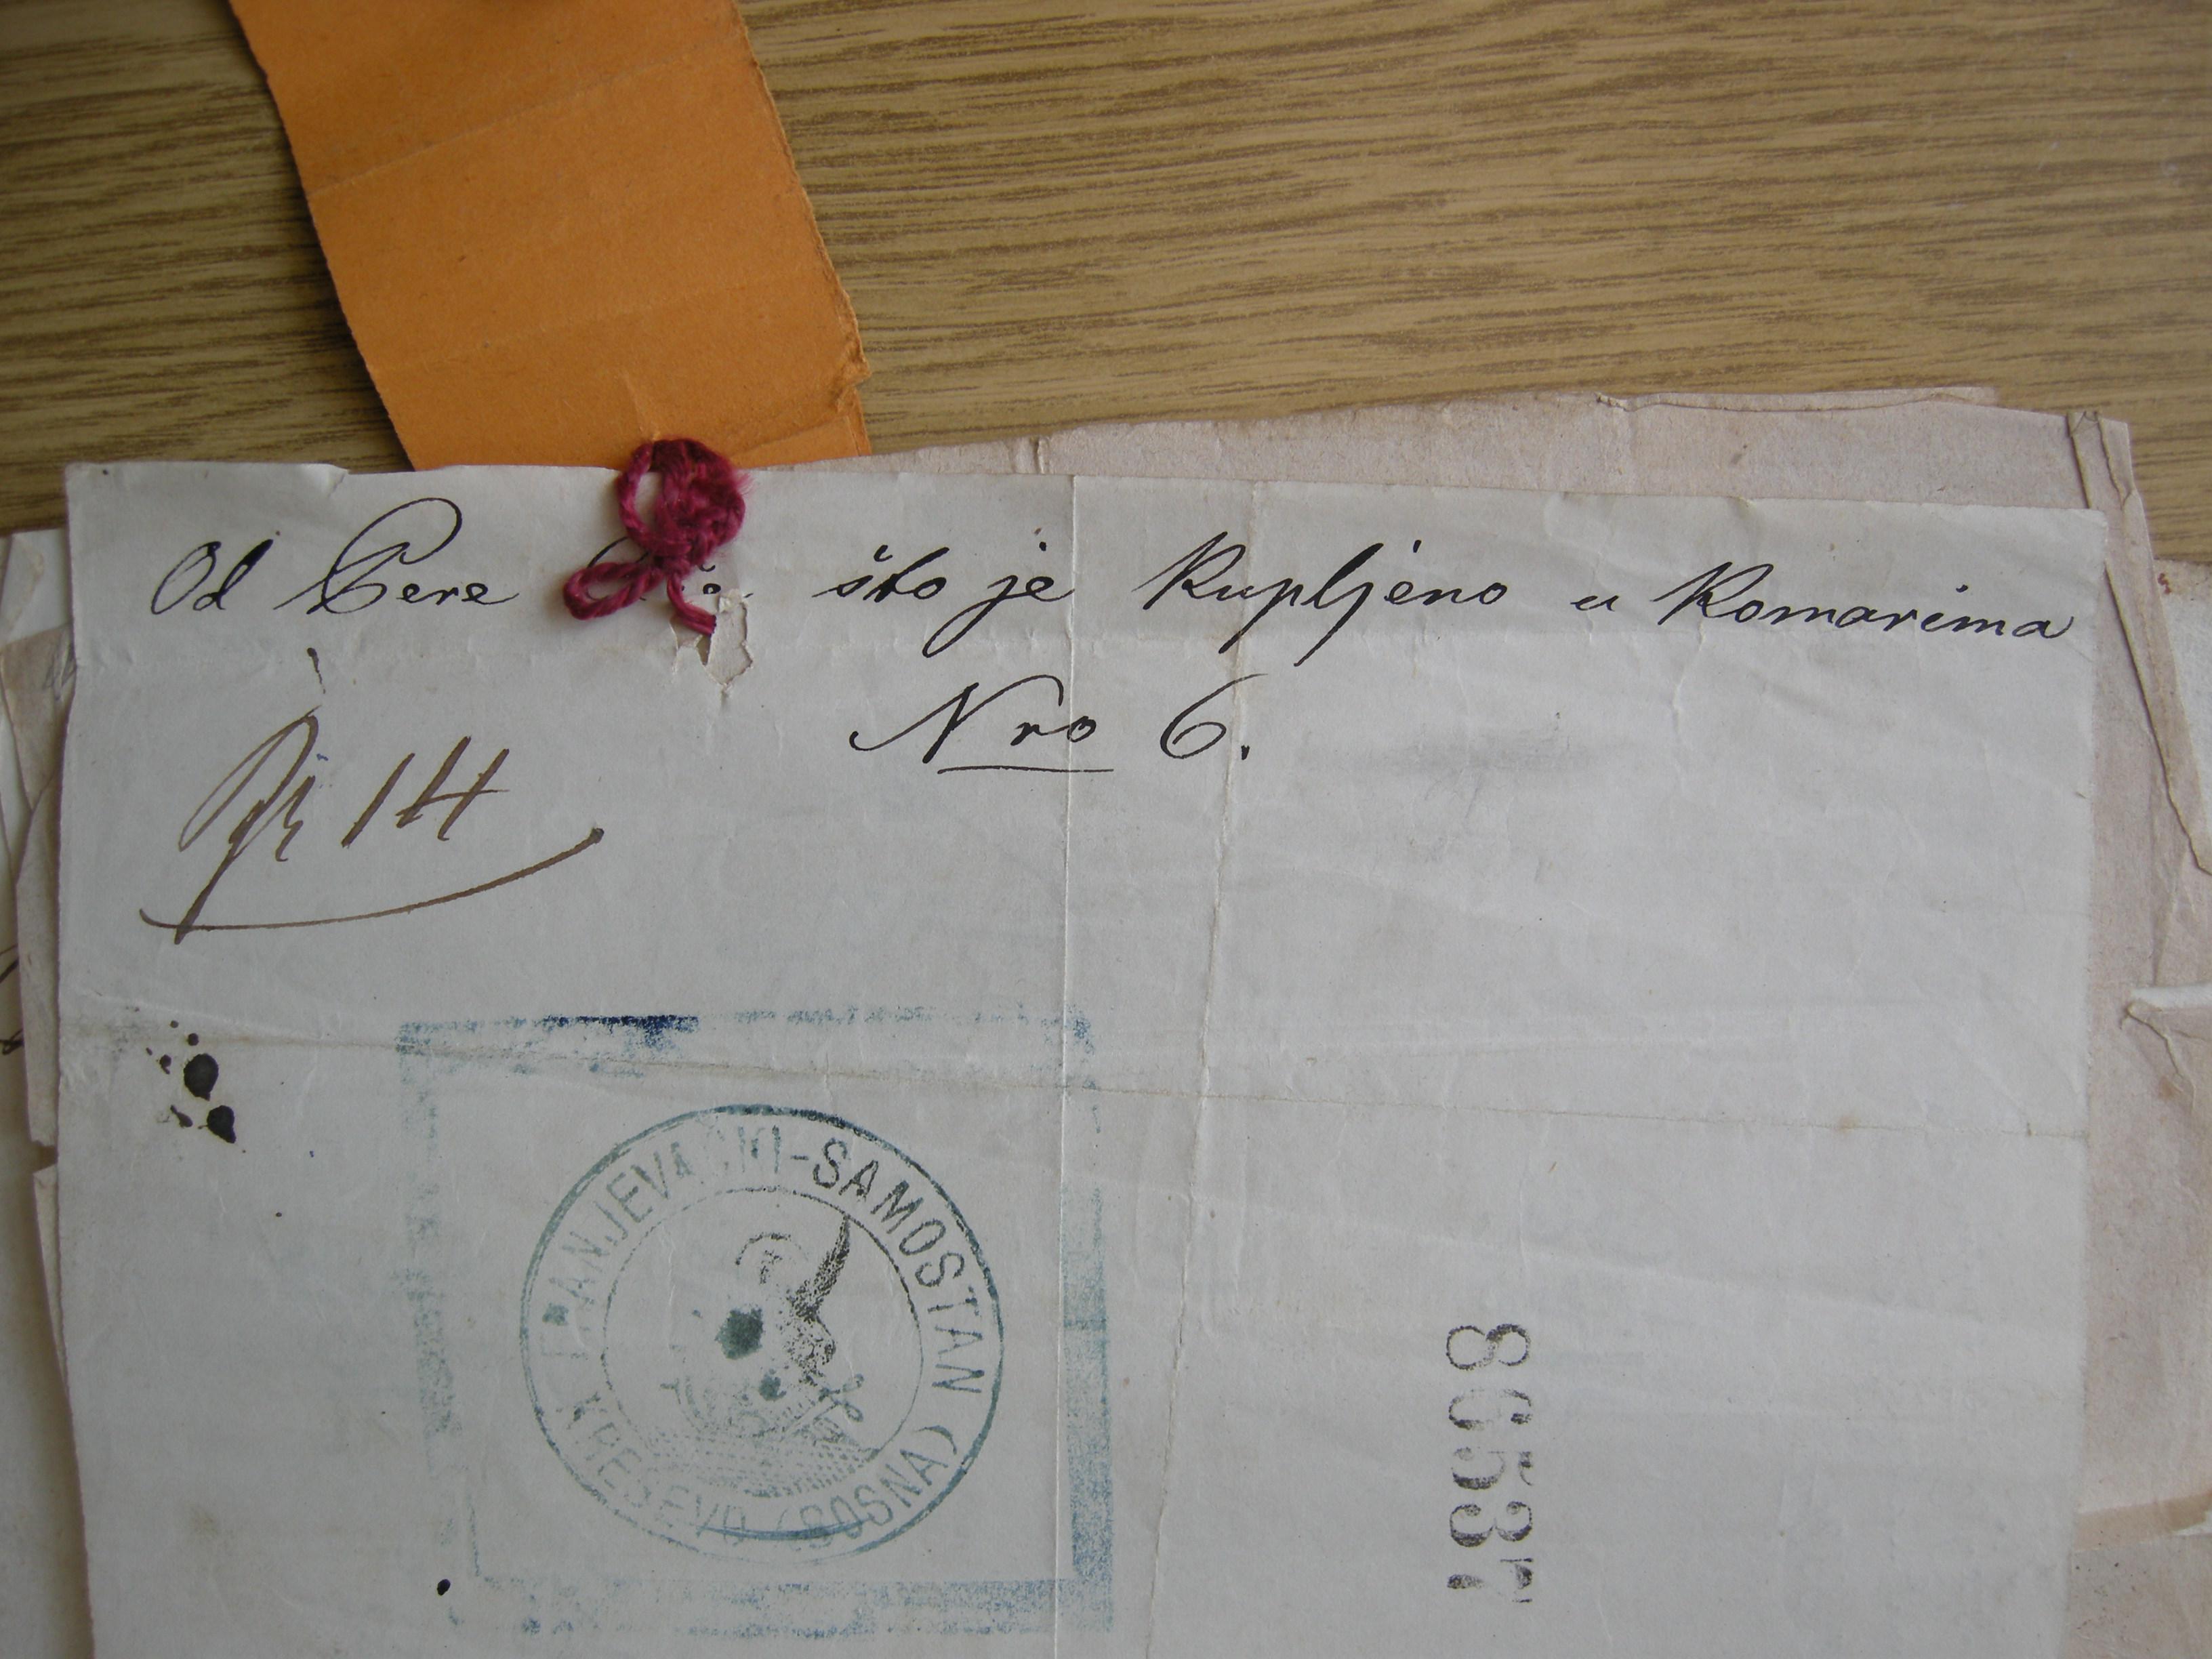 Od Pere što je Kupljeno u Komarima
Nro 6.
14
FRANJEVAČKI-SAMOSTAN
KREŠEVO (BOSNA)